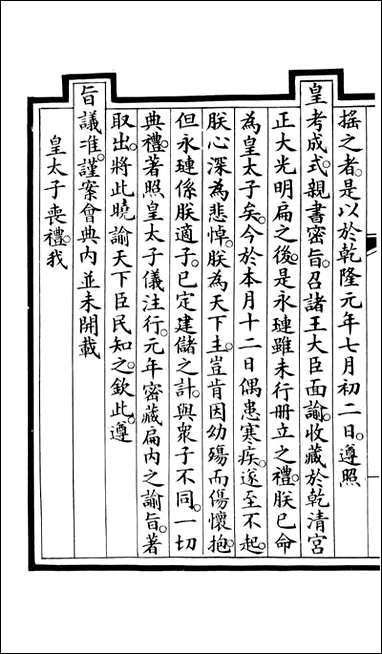 搖之者。是以於乾隆元年七月初二日。遵照
皇考成式。親書密旨。召諸王大臣面諭。收藏於乾清宮
正大光明扁之後。是永璉雖未行冊立之禮。朕已命
為皇太子矣。今於本月十二日偶患寒疾。遂至不起。
朕心深為悲悼。朕為天下主。豈肯因幼殤而傷懷抱。
但永璉係朕適子。已定建儲之計。與衆子不同。一切
典禮。著照皇太子儀注行。元年密藏扁內之諭旨。著
取出。將此曉諭天下臣民知之。欽此。遵
旨議准。謹案會典內並未開載
皇太子喪禮。我